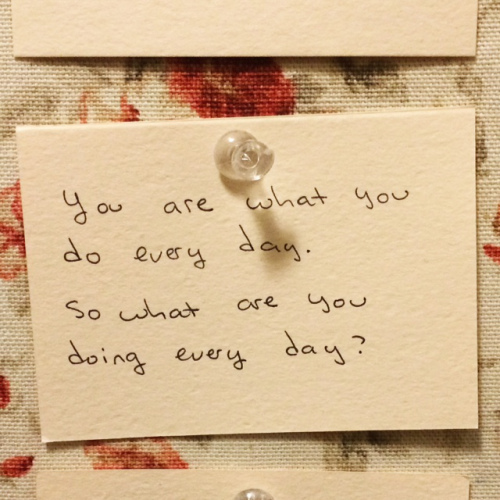 You are what you
do every day.
So what are you
doing every day?